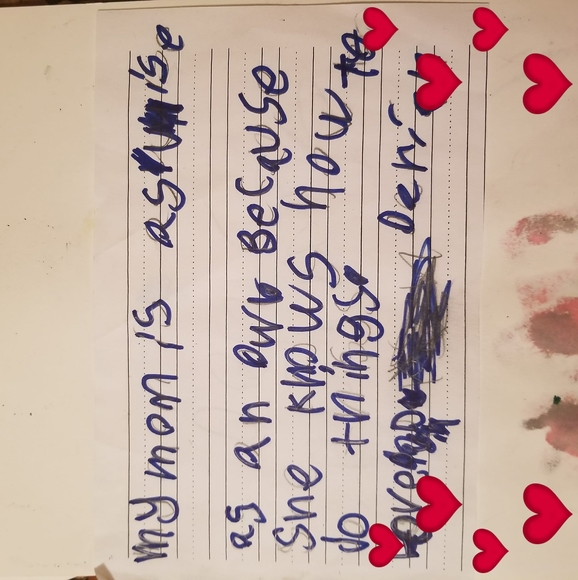 my mom is as wise
as an owl Because
She knows how to
do things.